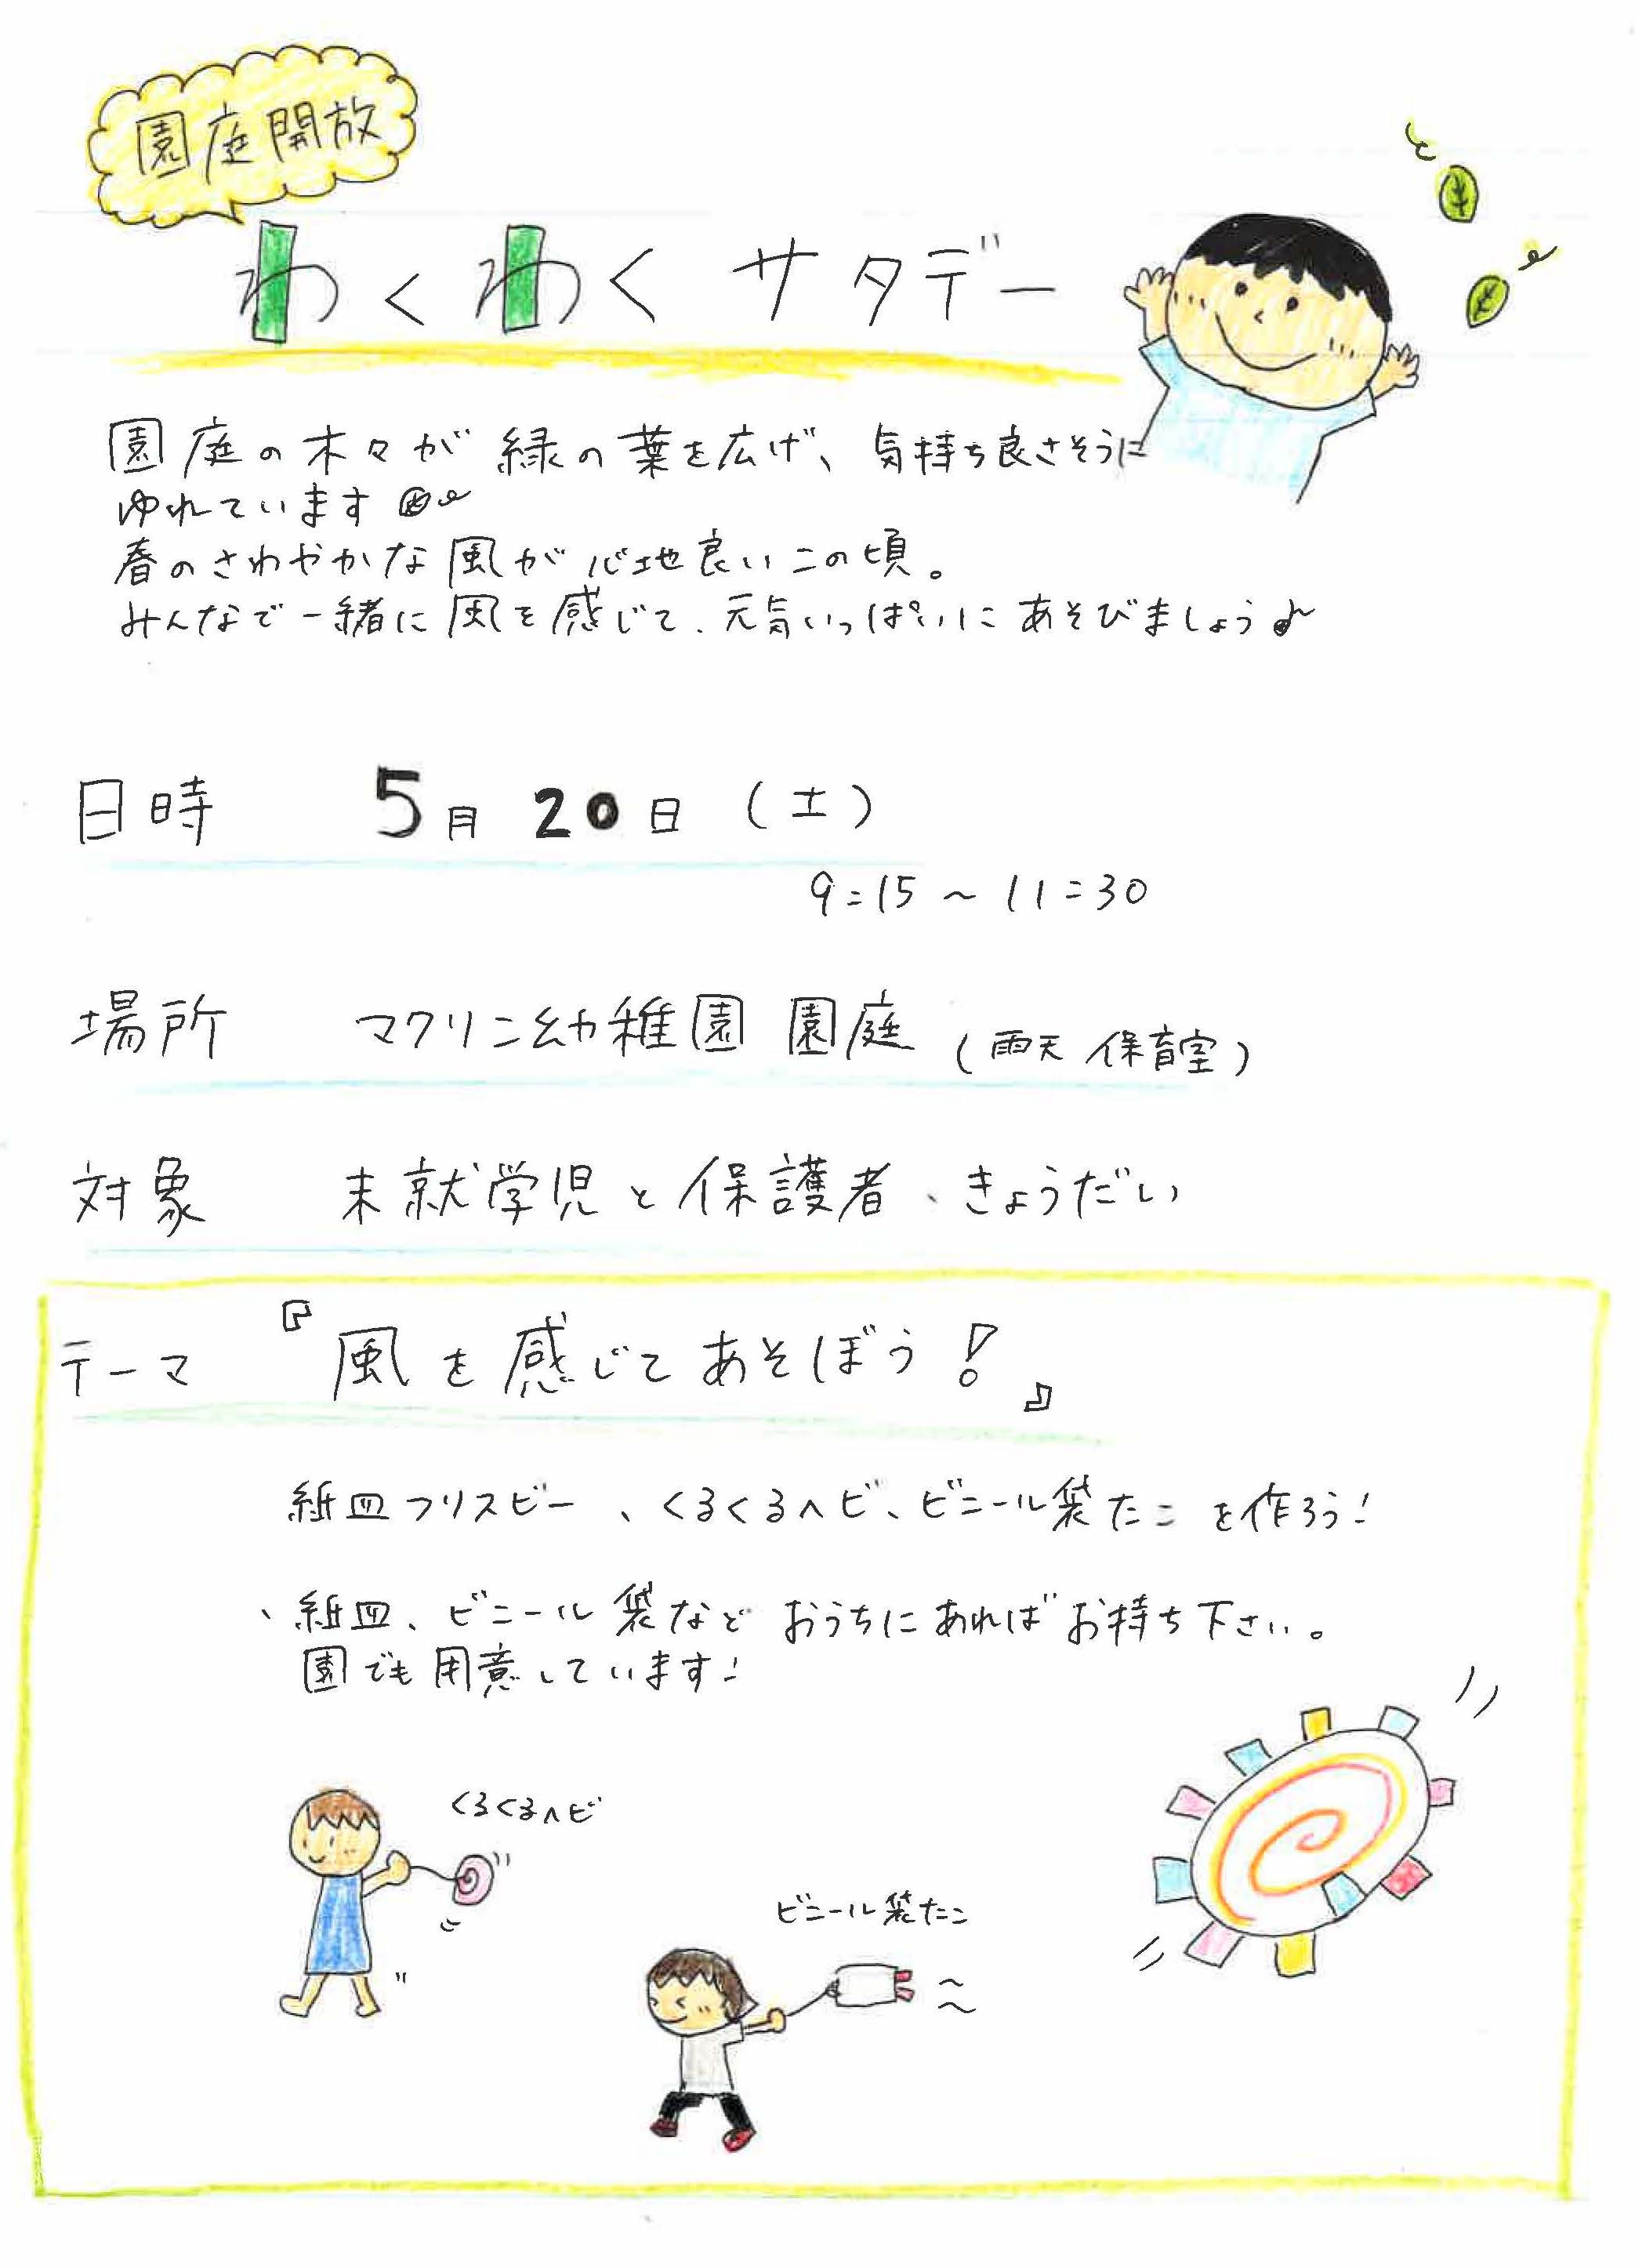 園庭開放
わくわくサタデー
園庭の木々が緑の葉を広げ、気持ち良さそうに
ゆれています
春のさわやかな風が心地良いこの頃。
みんなで一緒に風を感じて、元気いっぱいにあそびましょう♪
日時 5月20日(土)
9:15〜11:30
場所 マクリン幼稚園 園庭(雨天 保育室)
対象 未就学児と保護者、きょうだい
テーマ『風を感じてあそぼう!』
紙皿フリスビー、くるくるヘビ、ビニール袋たこを作ろう!
、紙皿、ビニール袋など おうちにあればお持ち下さい。
園でも用意しています!
くるくるヘビ
ビニール袋たこ